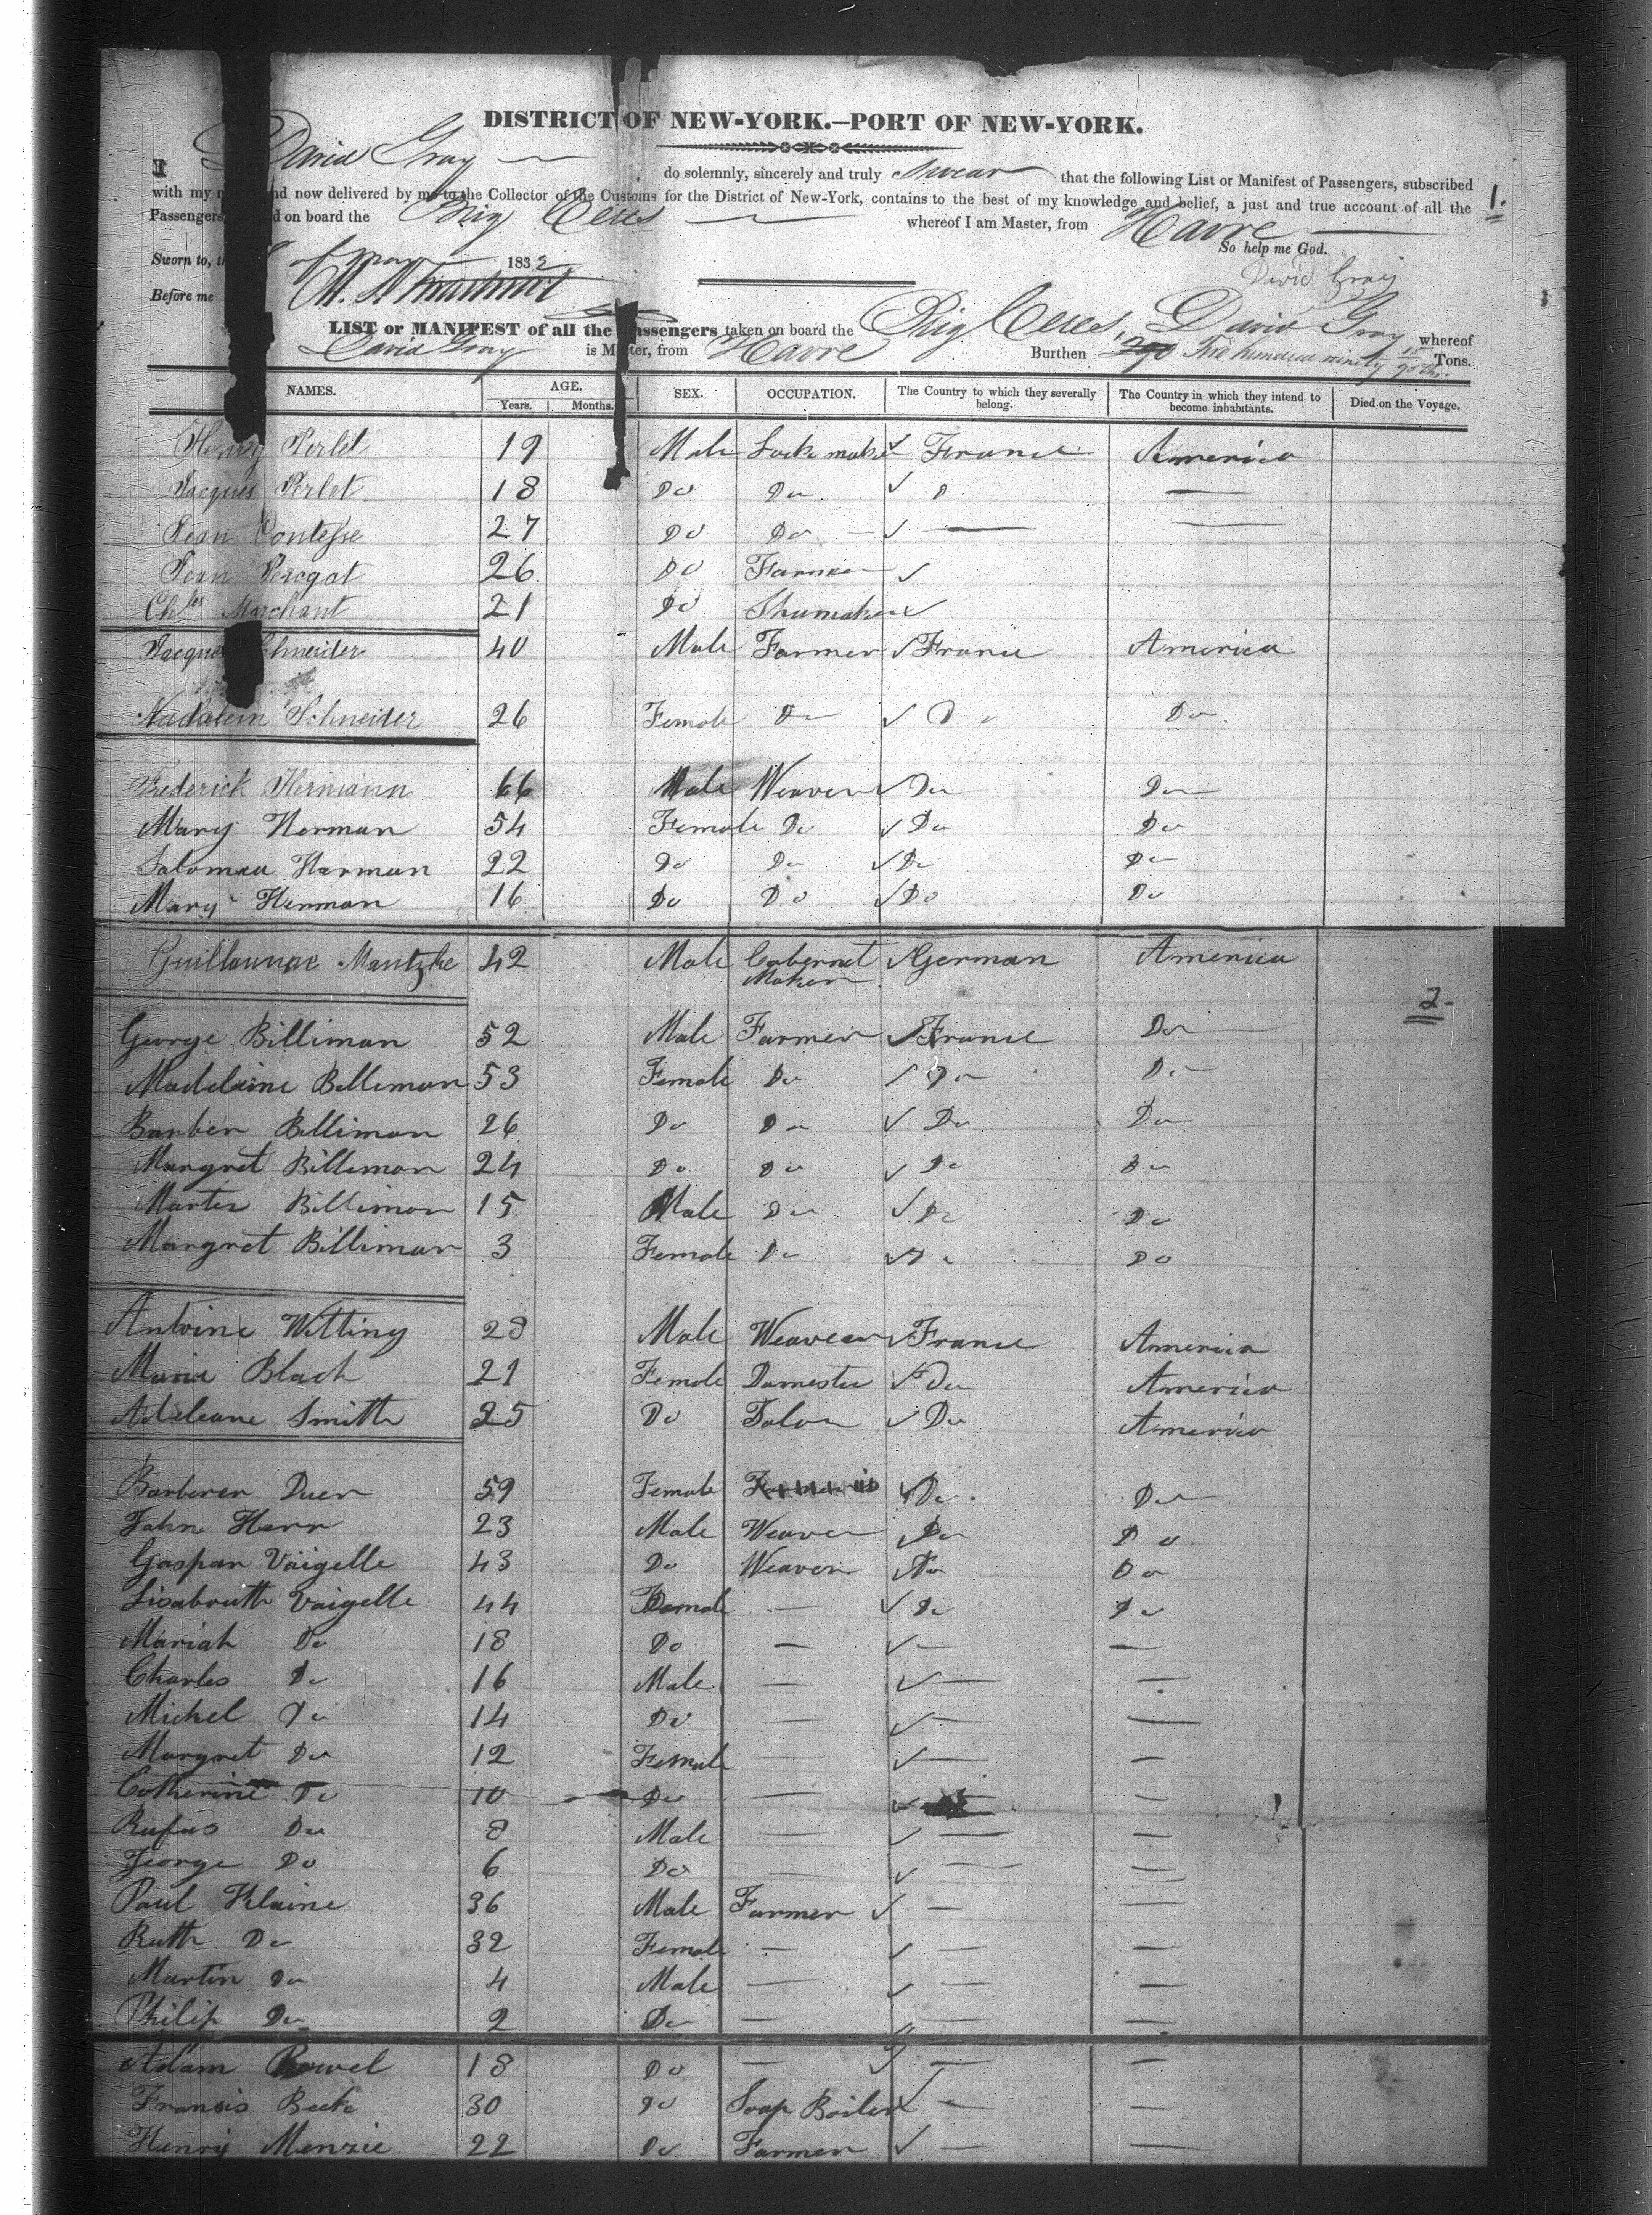 DISTRICT OF NEW-YORK.—PORT OF NEW-YORK.
I David Gray do solemnly, sincerely and truly swear that the following List or Manifest of Passengers, subscribed
with my nd now delivered by me to the Collector of the Customs for the District of New-York, contains to the best of my knowledge and belief, a just and true account of all the 1.
Passengers d on board the Brig Ceres whereof I am Master, from Havre
So help me God.
Sworn to, t of May 1832
David Gray
Before me
LIST or MANIFEST of all the Passengers taken on board the Brig Ceres, David Gray whereof
David Gray is Master, from Havre Burthen 290 Two hundred ninety Tons.
NAMES. AGE. SEX. OCCUPATION. The Country to which they severally belong. The Country in which they intend to become inhabitants. Died on the Voyage.
Years. Months.
Henry Perlet 19 Male Lock maker ✓ France America
Jacques Perlet 18 Do Do ✓ D —
Jean Contesse 27 Do Do — ✓ — —
Jean Peregot 26 Do Farmer ✓
Chles Marchant 21 Do Shumaker ✓
Jacques Schneider 40 Male Farmer ✓ France America
Nadalem Schneider 26 Female Do ✓ Do Do
Frederick Hermann 66 Male Weaver ✓ Do Do
Mary Herman 54 Female Do ✓ Do Do
Salomea Herman 22 Do Do ✓ Do Do
Mary Herman 16 Do Do ✓ Do Do
Guillaumae Mantzke 42 Male Cabernet Maker ✓ German America
2-
George Billiman 52 Male Farmer ✓ France Do
Madelaine Billeman 53 Female Do ✓ Do Do
Barber Billiman 26 Do Do ✓ Do Do
Margret Billiman 24 Do Do ✓ Do Do
Martin Billiman 15 Male Do ✓ Do Do
Margret Billiman 3 Female Do ✓ Do Do
Antoine Witting 28 Male Weaver ✓ France America
Maria Blach 21 Female Domestic ✓ Do America
Adeleane Smith 25 Do Talor ✓ Do America
Barberer Duer 59 Female ✓ Do Do
John Herr 23 Male Weaver ✓ Do Do
Gaspar Vaigelle 43 Do Weaver ✓ Do Do
Lisabouth Vaigelle 44 Female — ✓ Do Do
Mariah Do 18 Do — ✓ — —
Charles Do 16 Male — ✓ — —
Mickel Do 14 Do — ✓ — —
Margret Do 12 Female — ✓ — —
Catherine Do 10 Do — ✓ — —
Rufus Do 8 Male — ✓ — —
George Do 6 Do — ✓ — —
Paul Klaine 36 Male Farmer ✓ — —
Ruth Do 32 Female — ✓ — —
Martin Do 4 Male — ✓ — —
Philip Do 2 Do — ✓ — —
Adam Rowel 18 Do — ✓ — —
Fransis Beck 30 Do Soap Boiler ✓ — —
Henry Menzie 22 Do Farmer ✓ — —